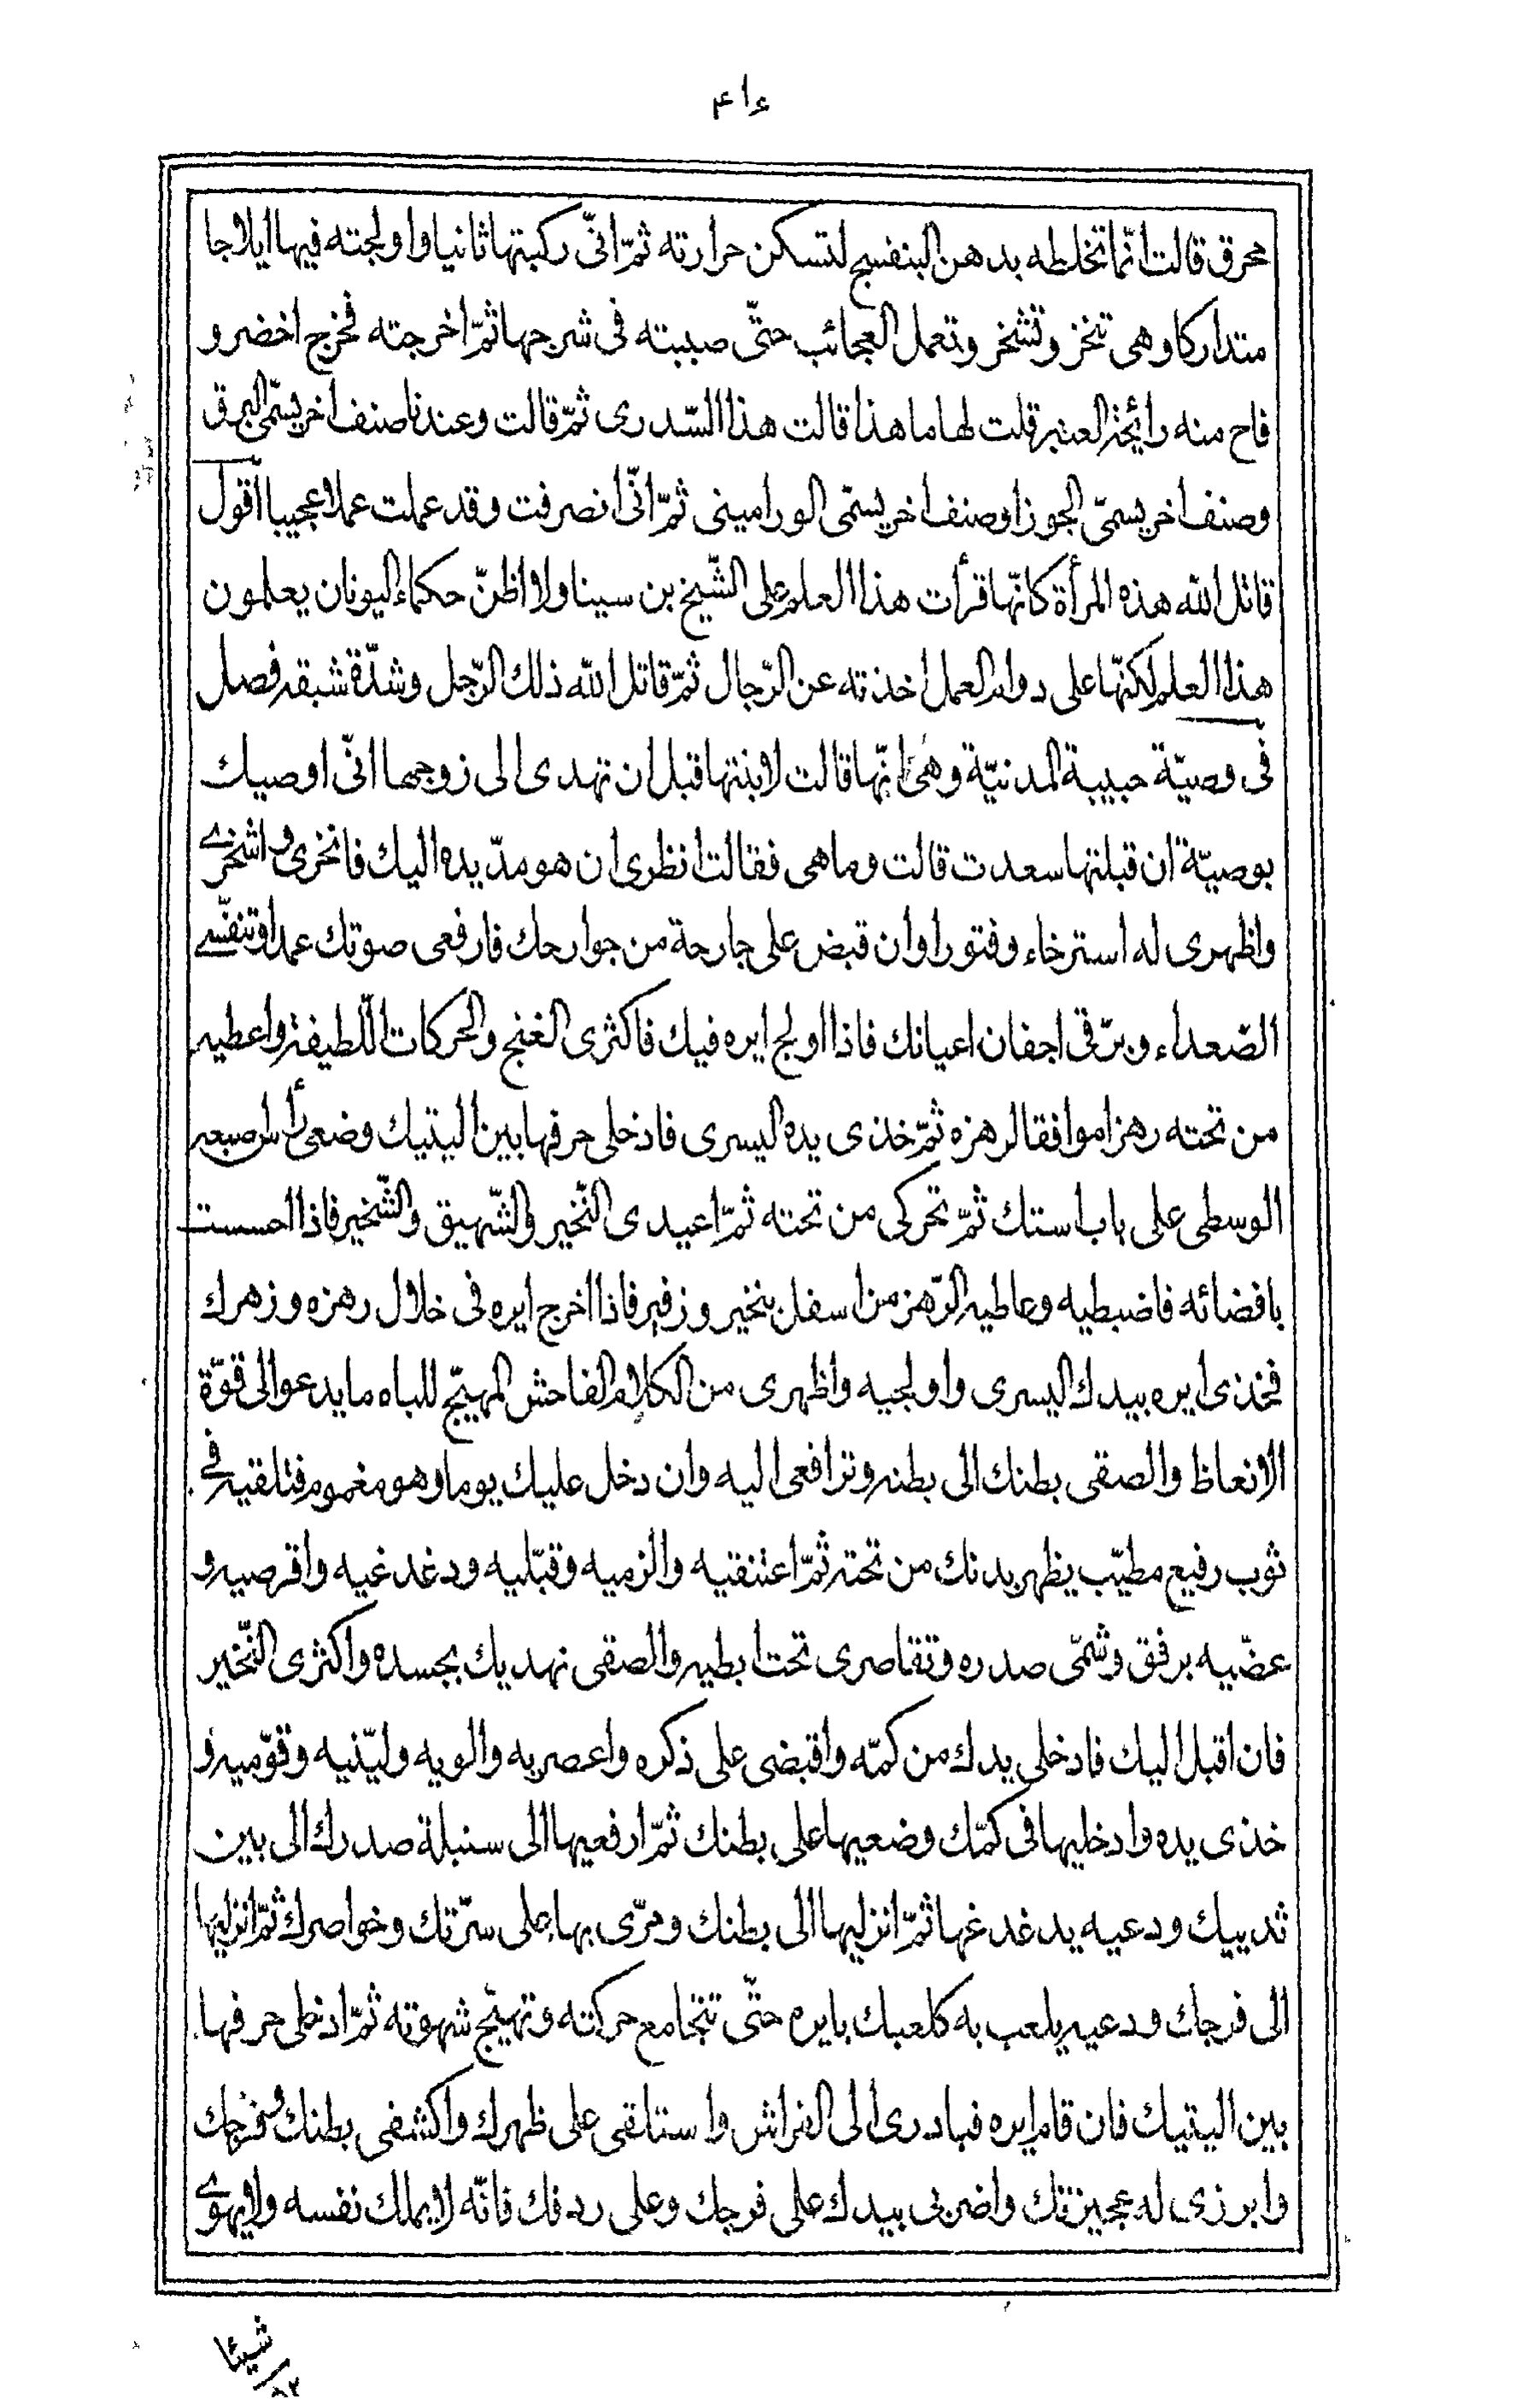 ٤١٤
محرق قالت انّما تخلطه بدهن البنفسج لتسكن حرارته ثمّ انّى ركبتها ثانيا واولجته فيها ايلاجا
متداركا وهى تنخز وتشخر وتعمل العجائب حتّى صببته فى شرجها ثمّ اخرجته فخرج اخضر و
فاح منه رائحة العنبر قلت لها ما هذا قالت هذا السّدرى ثمّ قالت وعندنا صنف اخر يسمّى البرق
وصنف اخر يسمّى الجوزا وصنف اخر يسمّى الوراميني ثمّ انّى انصرفت وقد عملت عملا عجيبا اقول
قاتل الله هذه المرأة كانّها قرأت هذا العلم على الشّيخ بن سينا ولا اظنّ حكماء اليونان يعلمون
هذا العلم لكنّها على دوام العمل اخذته عن الرّجال ثمّ قاتل الله ذلك الرّجل وشدّة شبقه فصل
فى وصيّة حبيبة المدنيّة وهى انّها قالت لابنتها قبل ان تهدى الى زوجها انّى اوصيك
بوصيّة ان قبلتها سعدت قالت وما هى فقالت انظرى ان هو مدّ يده اليك فانخرى واشخرى
واظهرى له استرخاء وفتورا وان قبض على جارحة من جوارحك فارفعى صوتك عمدا وتنفّسى
الصّعداء وبرّقى اجفان اعيانك فاذا اولج ايره فيك فاكثرى الغنج والحركات اللّطيفة واعطيه
من تحته رهزا موافقا لرهزه ثمّ خذى يده اليسرى فادخلى حرفها بين اليتيك وضعى رأس اصبعه
الوسطى على باب استك ثمّ تحركى من تحته ثمّ اعيدى النّخير والشّهيق والشّخير فاذا احسست
بافضائه فاضبطيه وعاطيه الرّهز من اسفل بنخير وزفير فاذا اخرج ايره فى خلال رهزه وزهرك
فخذى ايره بيدك اليسرى واولجيه واظهرى من الكلام الفاحش المهيّج للباه ما يدعو الى قوّة
الانعاظ والصقى بطنك الى بطنه وترافعى اليه وان دخل عليك يوما وهو مغموم فتلقيه فى
ثوب رفيع مطيّب يظهر بدنك من تحته ثمّ اعتنقيه والزميه وقبّليه ودغدغيه واقرصيه و
عضّيه برفق وشمّى صدره وتقاصرى تحت ابطيه والصقى نهديك بجسده واكثرى النّخير
فان اقبل اليك فادخلى يدك من كمّه واقبضى على ذكره واعصريه والويه وليّنيه وقوّميه و
خذى يده وادخليها فى كمّك وضعيها على بطنك ثمّ ارفعيها الى سنبلة صدرك الى بين
ثدييك ودعيه يدغدغها ثمّ انزليها الى بطنك ومرّى بها على سرّتك وخواصرك ثمّ انزليها
الى فرجك ودعيه يلعب به كلعبك بايره حتّى تتجامع حركته وتهيّج شهوته ثمّ ادخلى حرفها
بين اليتيك فان قام ايره فبادرى الى الفراش واستلقى على ظهرك واكشفى بطنك وفرجك
وابرزى له عجيزتك واضربى بيدك على فرجك وعلى ردفك فانّه لا يملك نفسه ولا يهوى
شيئا
٥٢